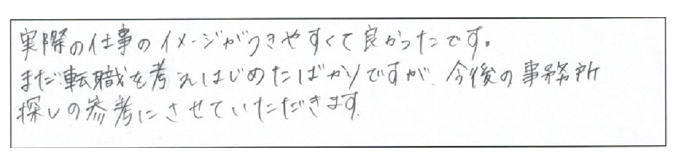 実際の仕事のイメージがつきやすくて良かったです。
まだ転職を考えはじめたばかりですが、今後の事務所
探しの参考にさせていただきます。